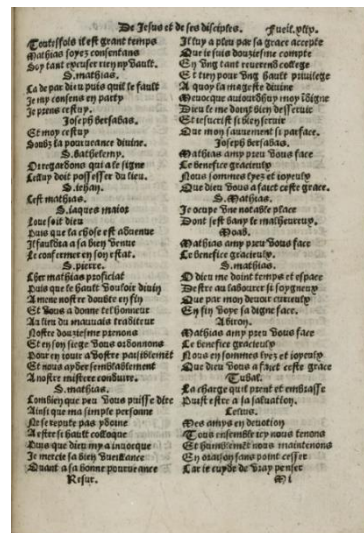 De Jesus et de ses disciples. Fueil. xlix.
Toutesfois il est grant temps
Mathias soyez consentans
Soy tant excuser rien ny vault.
S. mathias.
La de par dieu puis quil le fault
Je my consens en party
Je prens cestuy.
Joseph bersabas.
Et moy cestuy
Soubz la pourueance divine.
S. barthelemy.
Or regardons qui a le signe
Cestuy doit posseser du lieu.
S. iehan.
Cest mathias.
S. iaques maior
Loue soit dieu
Puis que la chose est aduenue
Il fauldra a sa bien venue
Le confermer en son estat.
S. pierre.
Cher mathias prosiciat
Puis que le hault vouloir divin
A mene nostre doubte en fin
Et vous a donne tel honneur
Au lieu du mauuais traditeur
Nostre douziesme prenons
Et en son siege vous ordonnons
Pour en iouir a vostre paisiblemēt
Et nous ayder semblablement
A nostre mistere conduire.
S. mathias.
Combien que peu vous puisse dire
Ainsi que ma simple personne
Ne se repute pas ydoine
A estre si hault colloque
Puis que dieu my a inuoque
Je mercie sa bien vueillance
Quant a sa bonne pourueance
Resur.
Il luy a pleu par sa grace accepte
Que ie suis douziesme compte
En vng tant reuerend college
Et tien pour vng hault priuilege
A quoy la mageste diuine
Meuocque auiourdhuy moy īdigne
Dieu se me doint bien desseruir
Et iesucrist si bien seruir
Que mon sauuement se parface.
Joseph bersabas.
Mathias amy preu vous face
Le benefice gracieulx
Nous sommes lyez et ioyeulx
Que dieu vous a faict ceste grace.
S. Mathias.
Je ocupe vne notable place
Dont sest bany le malheureux.
Moab.
Mathias amy preu vous face
Le benefice gracieulx.
S. mathias.
Dieu me doint temps et espace
Destre au labourer si soygneux
Que par mon deuoir curieulx
En fin voye sa digne face.
Abiron.
Mathias amy preu vous face
Le benefice gracieulx
Nous en sommes lyez et ioyeulx
Que dieu vous a faict ceste grace
Tubal.
La charge quil prent et embrasse
Puist estre a sa saluation.
Jesus.
Mes amys en deuotion
Tous ensemble icy nous tenons
Et humblemēt nous maintenons
En oraison sans point cesser
Car ie cuyde de vray penser
M i